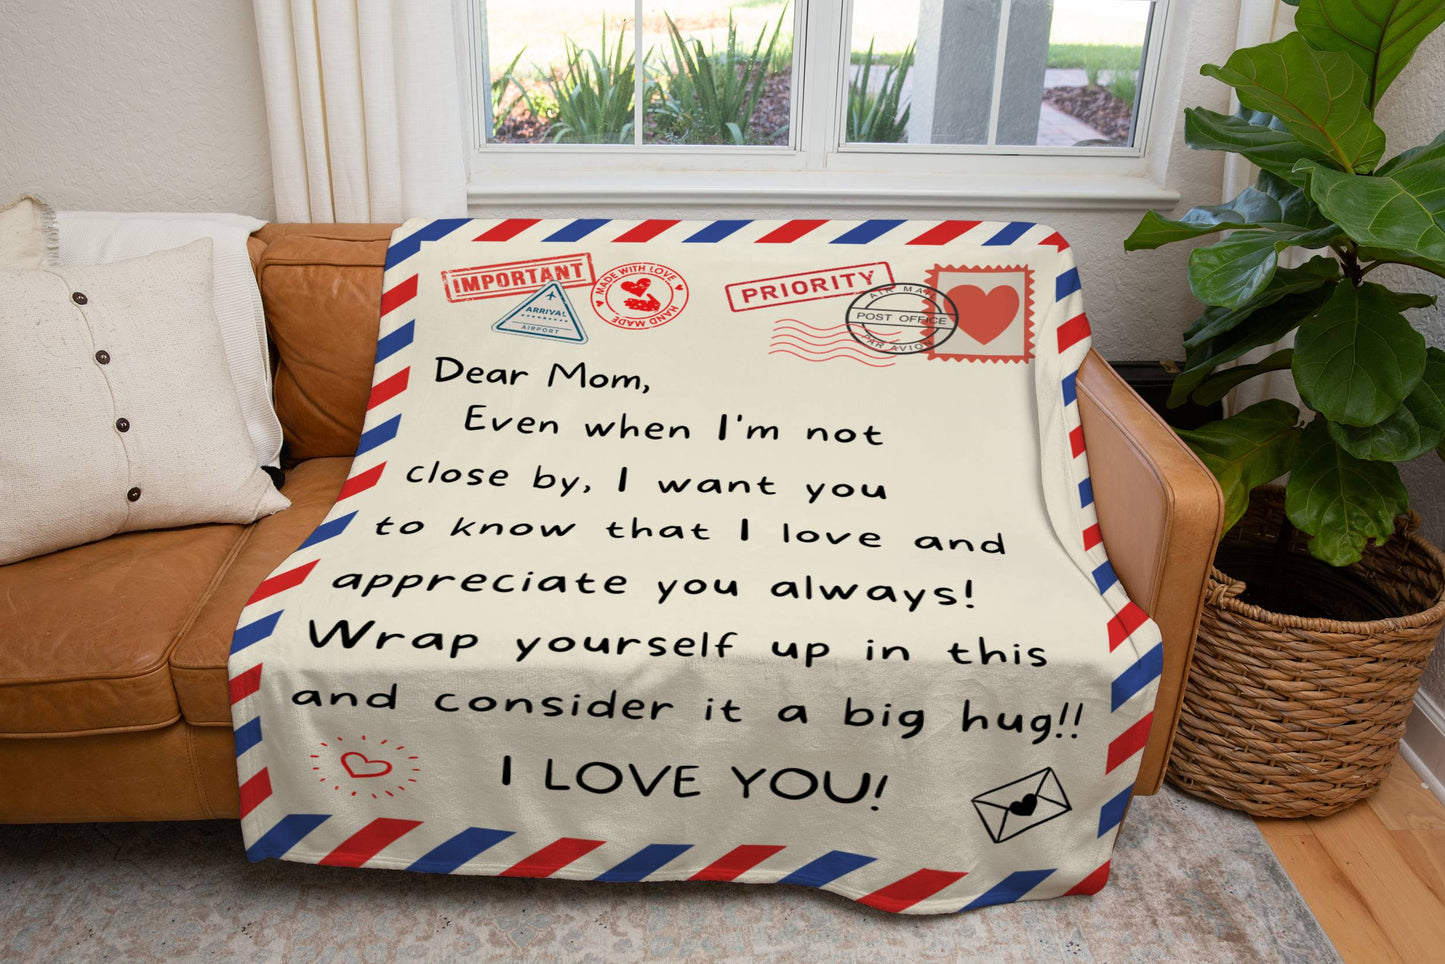 IMPORTANT
MADE WITH LOVE
HAND MADE
ARRIVAL
AIRPORT
PRIORITY
AIR MAIL
POST OFFICE
PAR AVION
Dear Mom,
Even when I'm not
close by, I want you
to know that I love and
appreciate you always!
Wrap yourself up in this
and consider it a big hug!!
I LOVE YOU!